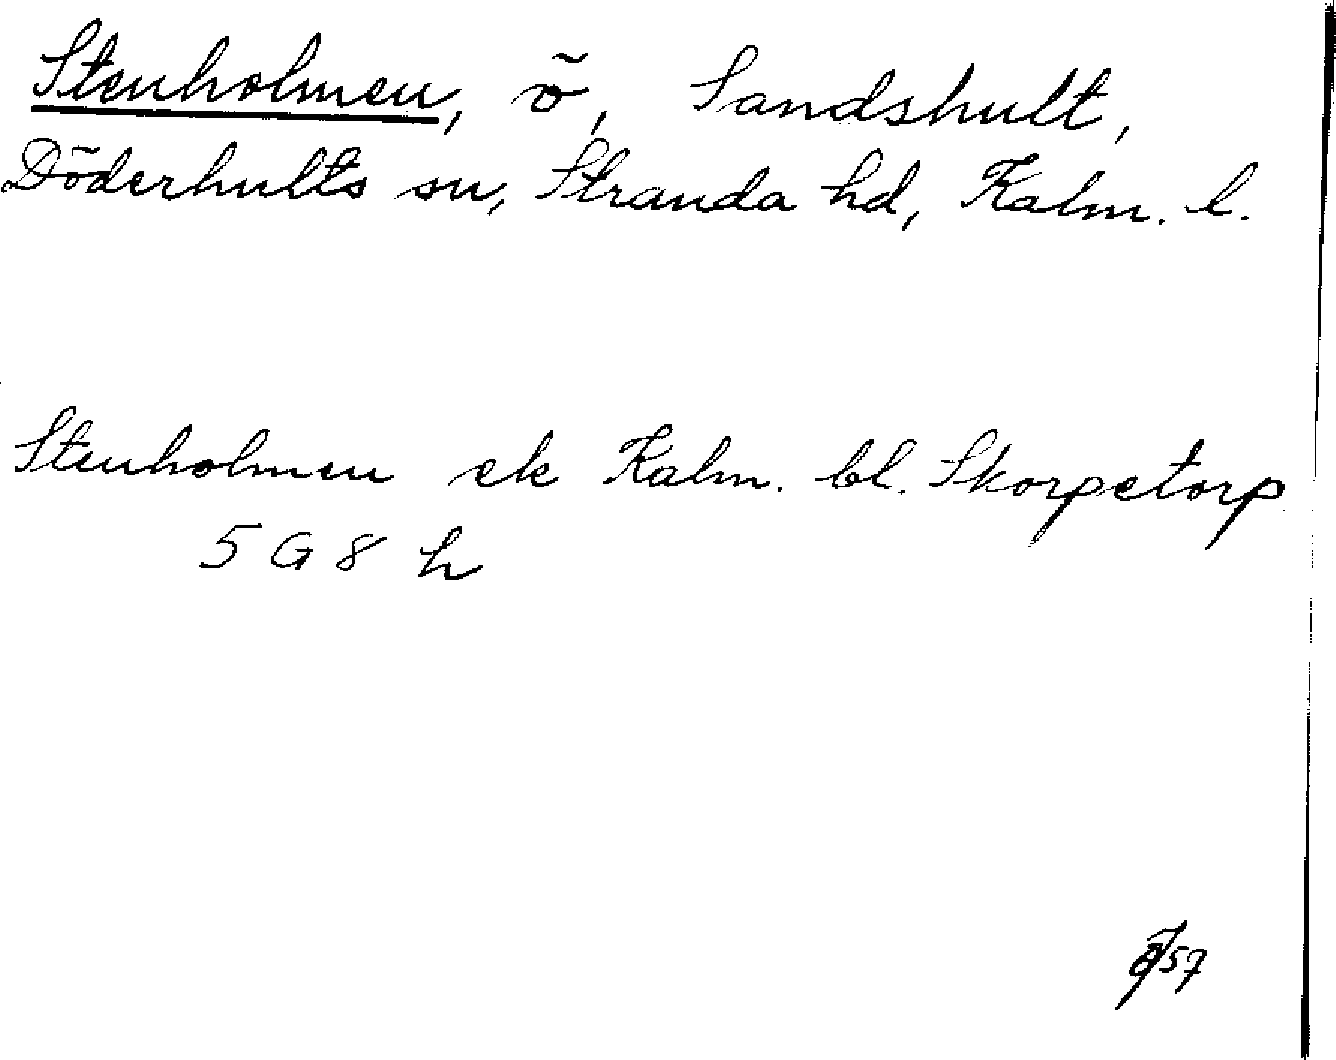 Stenholmen, ö, Sandshult,
Döderhults sn, Stranda hd, Kalm. l.
Stenholmen ek Kalm. bl. Skorpetorp
5 G 8 h
57